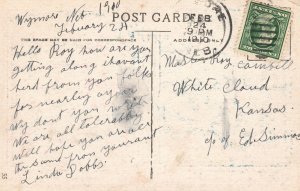 Wymore Neb. 1910
Febuary 24
POST CARD
THIS SPACE MAY BE USED FOR CORRESPONDENCE
FEB
24
9 PM
1910
Hello Roy how are you
getting along i havant
herd from you folks
for nearley a year
Why dont you write
We are all tolerabley
Well hope you are all
the same from your aunt
Linda Dobbs.
Master Roy Campbell
White Cloud
Kansas.
c/o of Ed. Simmons